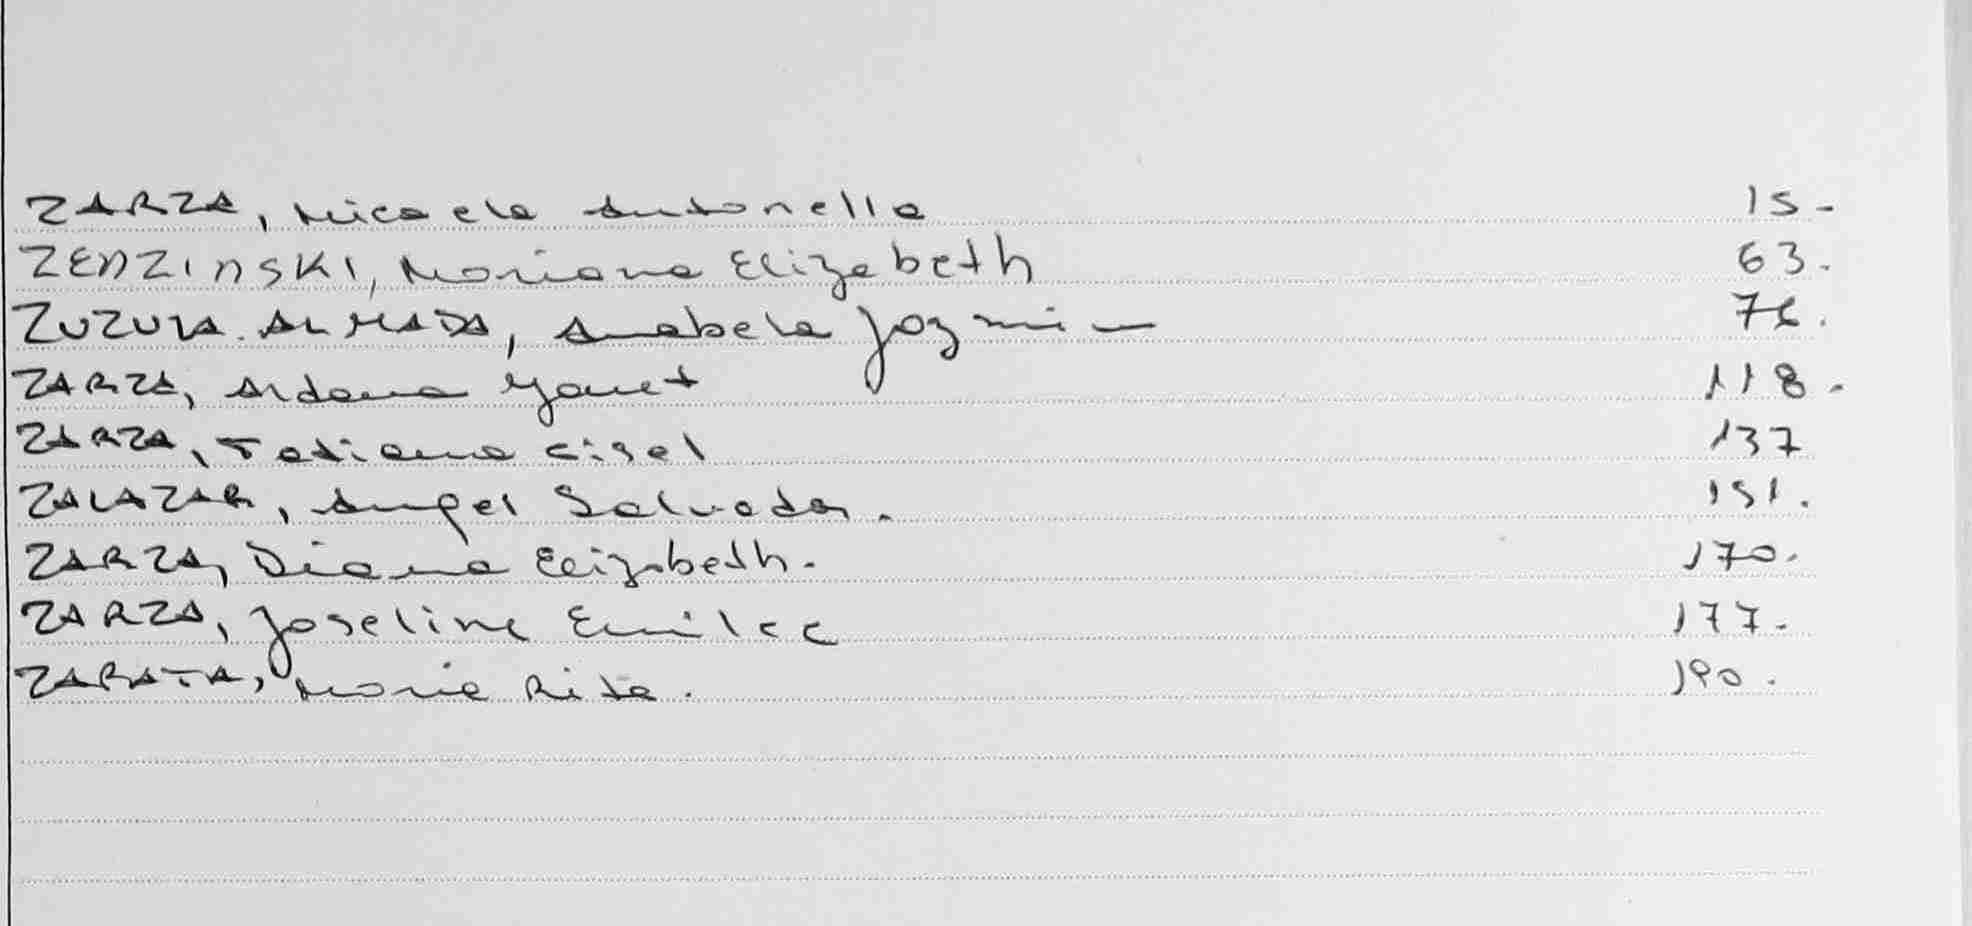 ZARZA, Micaela Antonella 15.-
ZENZINSKI, Mariana Elizabeth 63.
ZUZULA ALMADA, Anabela Jazmin 76.
ZARZA, Aldana Yanet 118.
ZARZA, Tatiana Gisel 137
ZALAZAR, Angel Salvador. 151.
ZARZA, Diana Elizabeth. 170.
ZARZA, Joseline Emilce 177.
ZARATA, Maria Rita. 190.